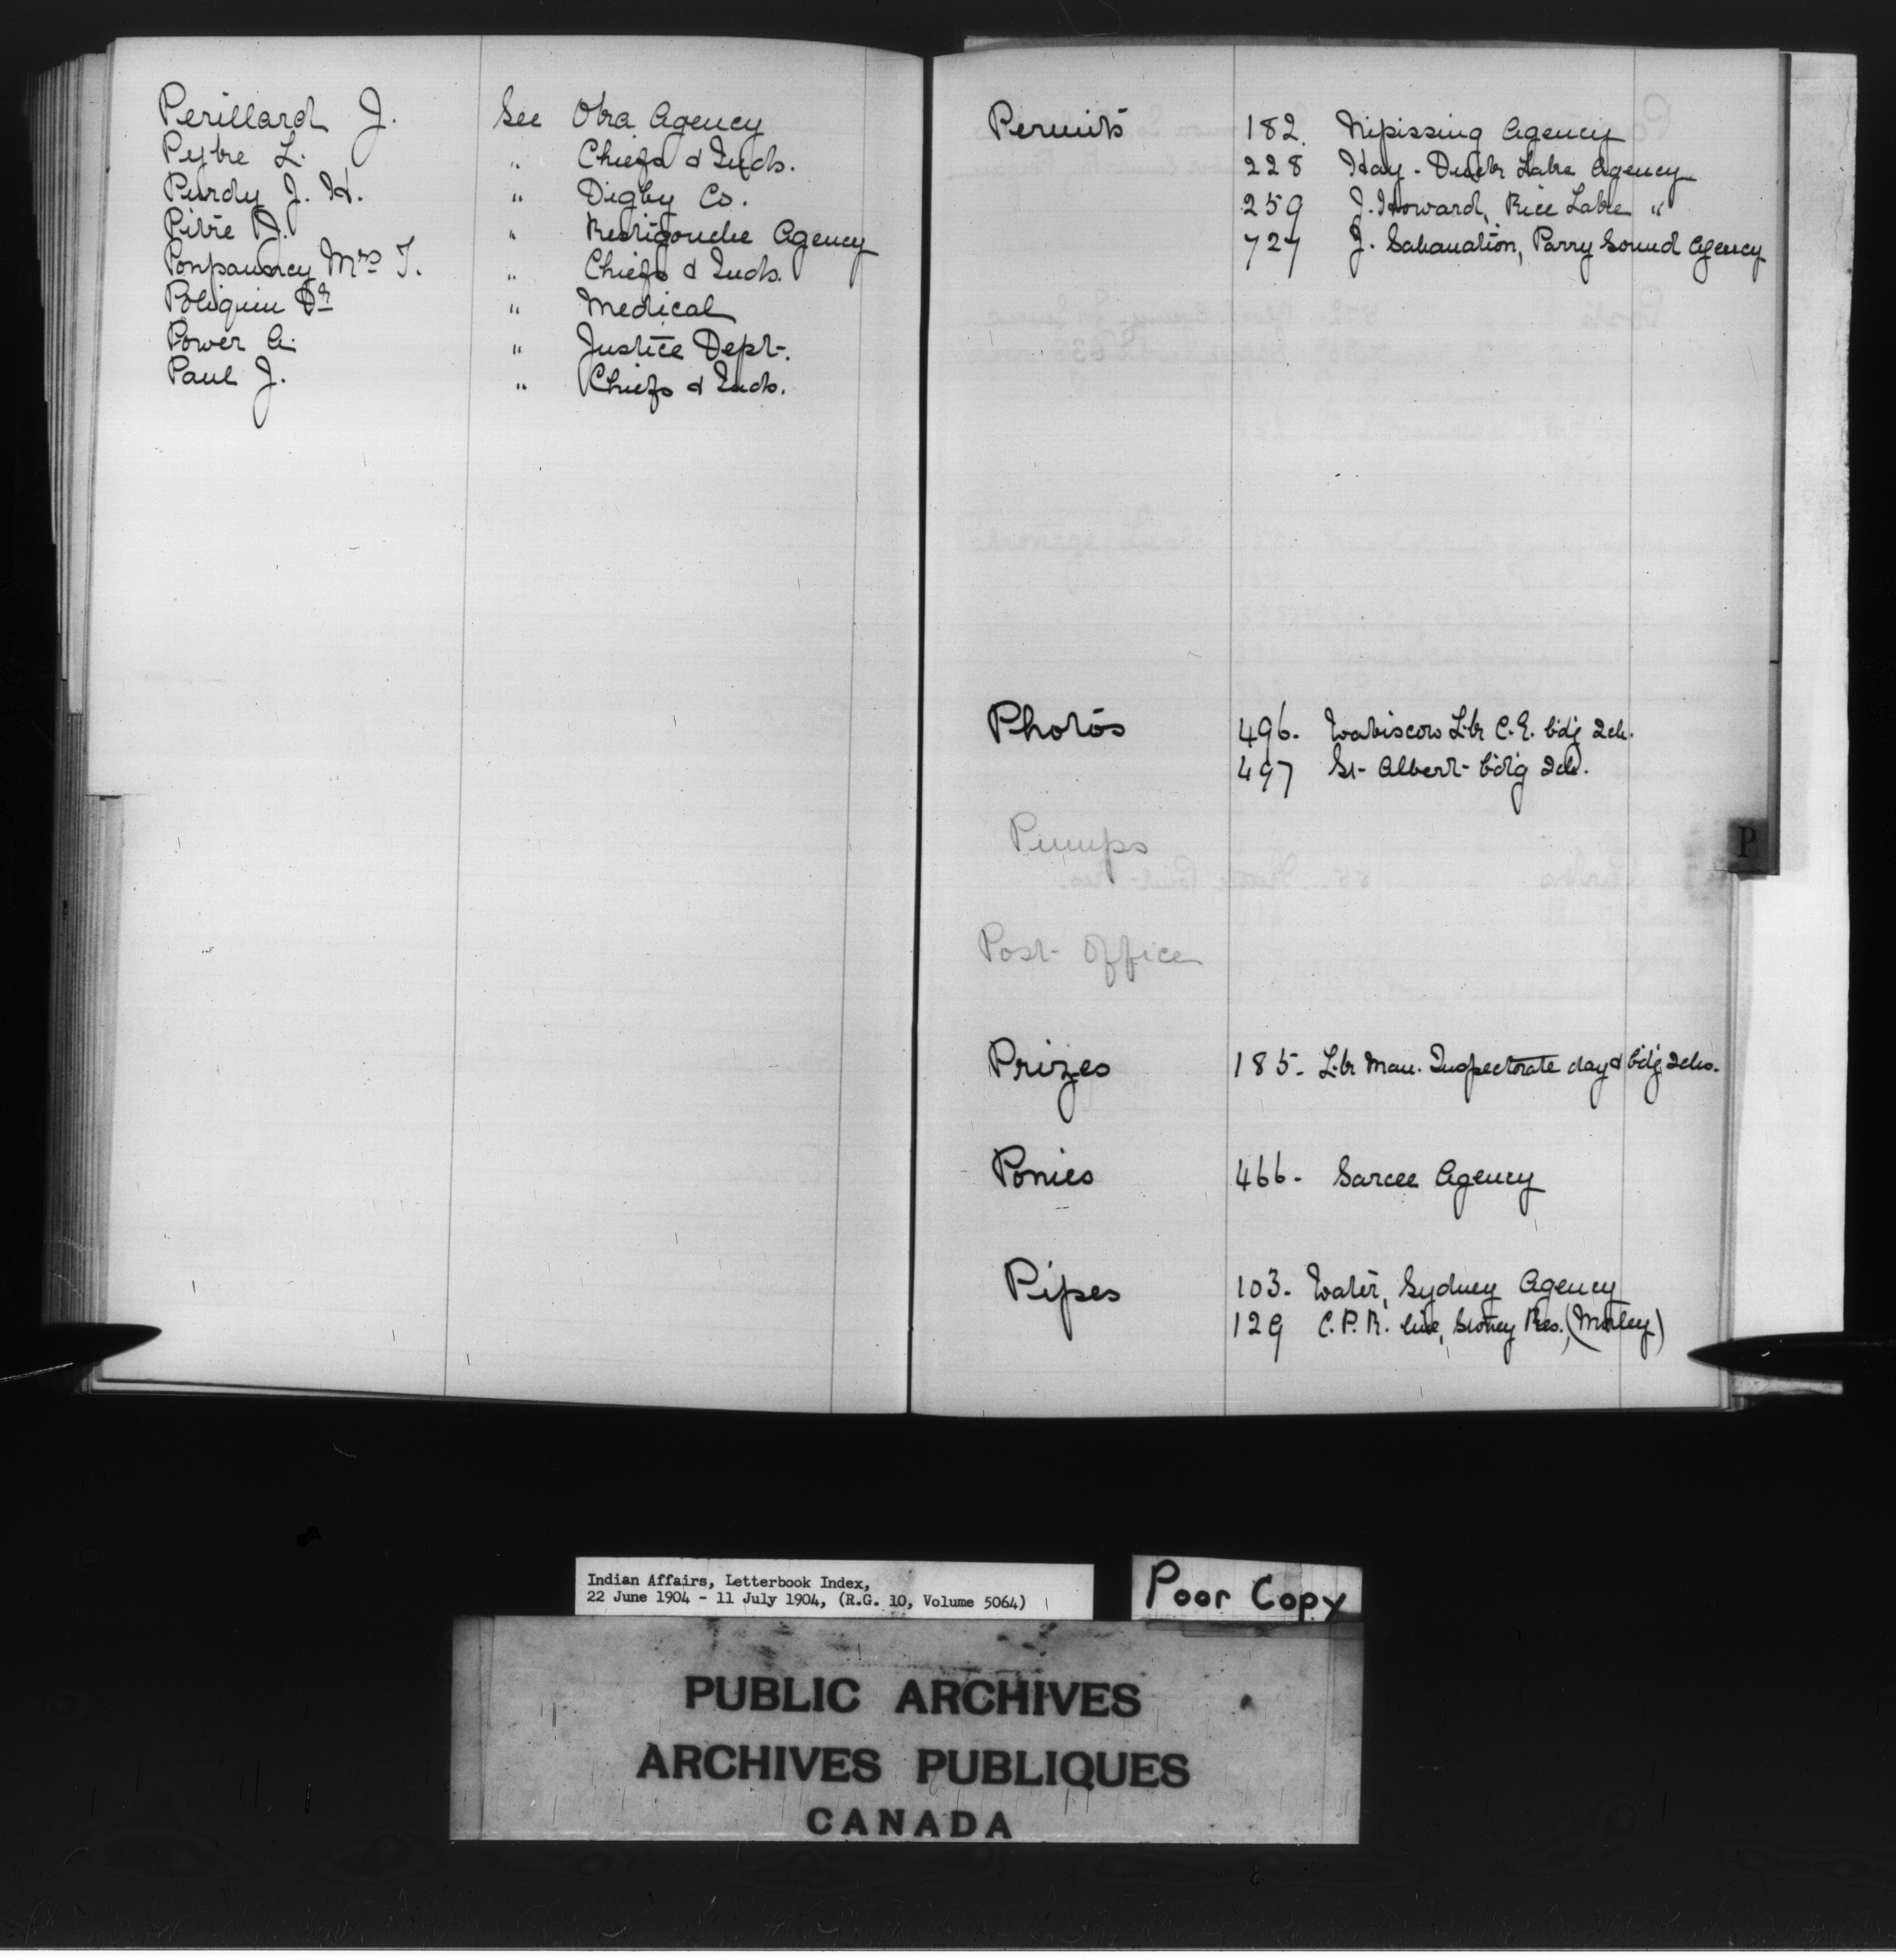 Perillard J. See Oka Agency
Pyke L. " Chiefs & Inds.
Purdy J. H. " Digby Co.
Pitre " Restigouche Agency
Mrs T. " Chiefs & Inds.
Poliquin Dr " Medical
Power A. " Justice Dept.
Paul J. " Chiefs & Inds.
Permits 182. Nipissing Agency
228 Hay - Duck Lake Agency
259 J. Howard, Rice Lake "
727 J. Sahanation, Parry Sound Agency
Photos 496. Wabiscow Lk C.E. bdg Sch.
497 St. Albert bdg Sch.
Pumps
Post Office
Prizes 185. Lk Man. Inspectorate day & bdg Schs.
Ponies 466. Sarcee Agency
Pipes 103. Water, Sydney Agency
129 C.P.R. line, Stoney Res. (Morley)
P
Indian Affairs, Letterbook Index,
22 June 1904 - 11 July 1904, (R.G. 10, Volume 5064)
Poor Copy
PUBLIC ARCHIVES
ARCHIVES PUBLIQUES
CANADA